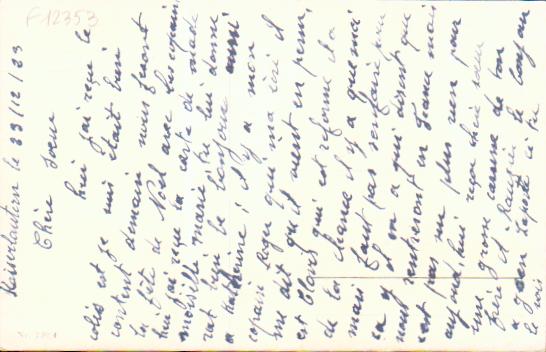 F12353
Kaiserlautern le 23/12/23
Chère Soeur
hui j'ai reçu le
colis et je suis était bien
content demain nous feront
la fête de Noël avec les copains
hui j'ai reçu la carte de made
moiselle marie tu lui donné
rat bien le bonjour aussi
a; il y a mon
copain Roger qui m'a écri il
me dit qu'il vient en perm,
est Clovis qui est reformé il a
de la chance il y a que moi
mais faut pas s'en faire pour
ca y il on a qui disent que
nous rentreront en France mais
c'est pas un plus rien pour
aujourd'hui reçoi chère soeur
une grosse caresse de ton
frère
le bonjour